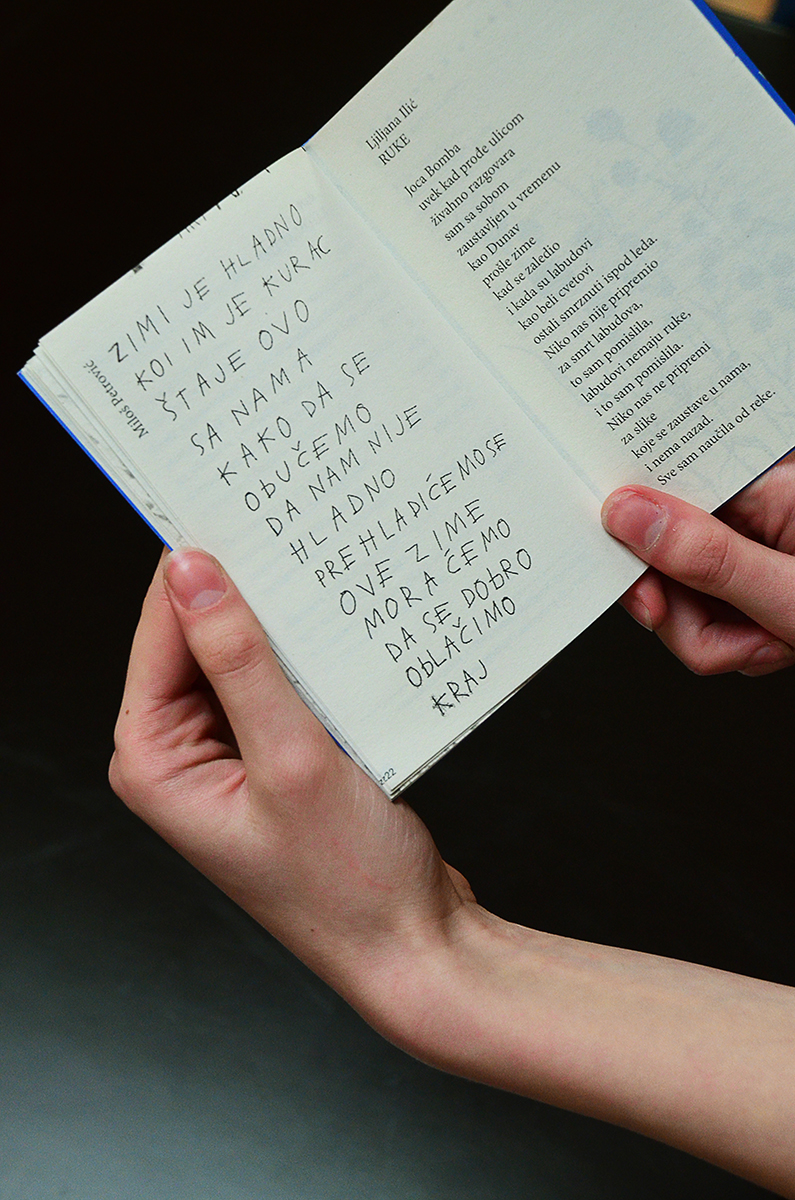 Miloš Petrović
ZIMI JE HLADNO
KOI IM JE KURAC
ŠTAJE OVO
SA NAMA
KAKO DA SE
ObUČEMO
DA NAM NIJE
HLADNO
PREHLADIĆEMOSE
OVE ZIME
MORAĆEMO
DA SE DObRO
ObLAČIMO
KRAJ
Ljiljana Ilić
RUKE
Joca Bomba
uvek kad prođe ulicom
živahno razgovara
sam sa sobom
zaustavljen u vremenu
kao Dunav
prošle zime
kad se zaledio
i kada su labudovi
kao beli cvetovi
ostali smrznuti ispod leda.
Niko nas nije pripremio
za smrt labudova,
to sam pomislila,
labudovi nemaju ruke,
i to sam pomislila.
Niko nas ne pripremi
za slike
koje se zaustave u nama,
i nema nazad.
Sve sam naučila od reke.